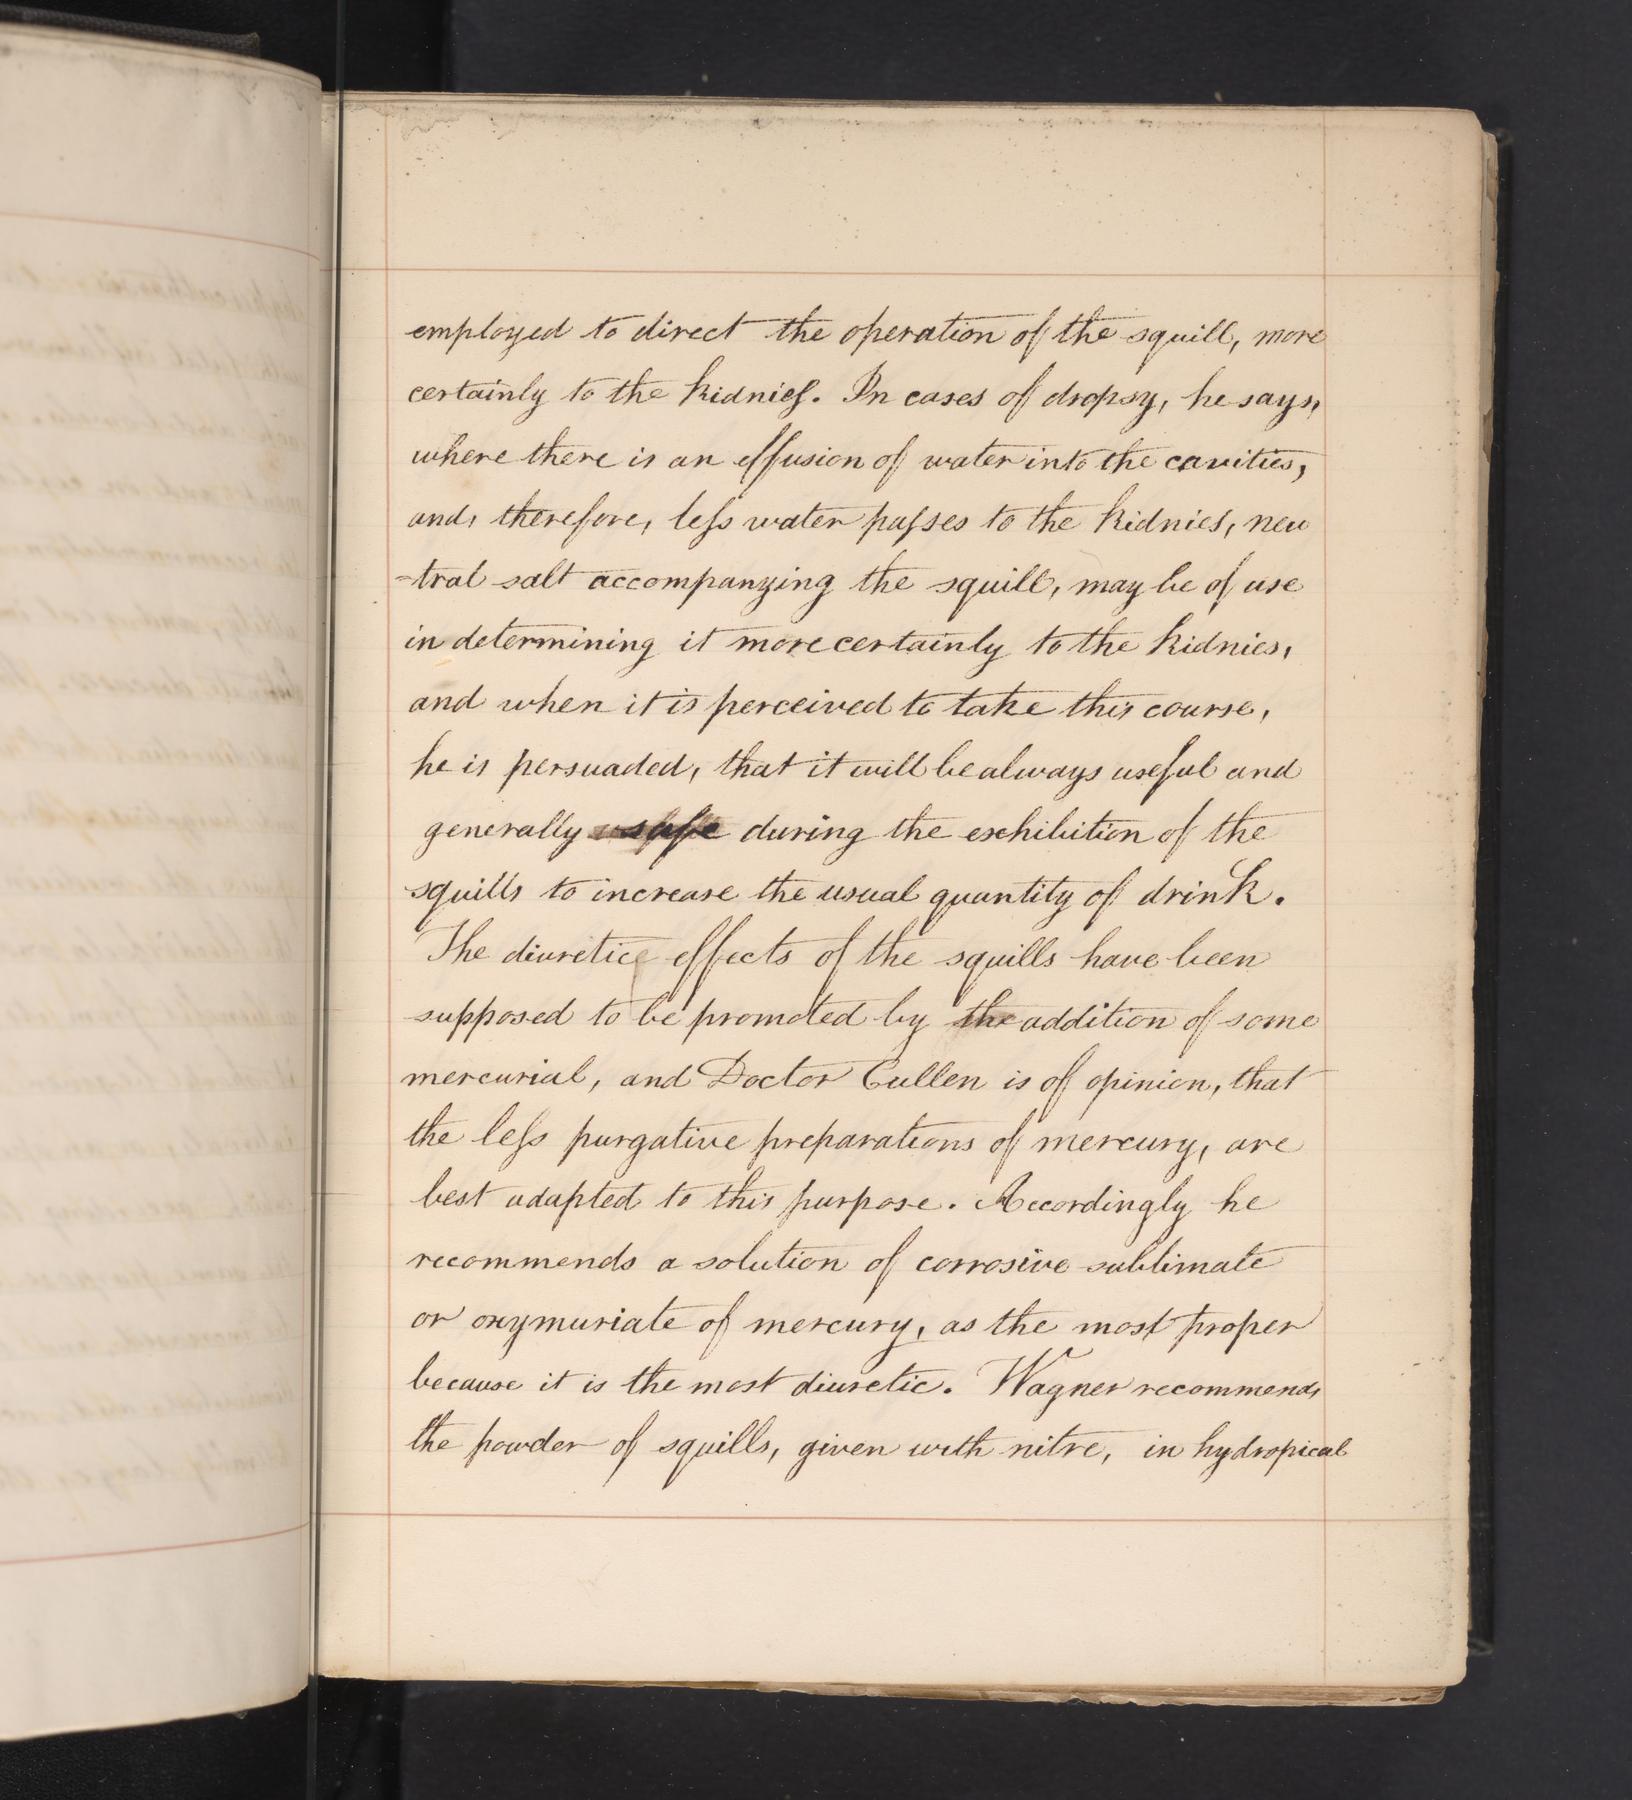 employed to direct the operation of the squill, more
certainly to the kidnies. In cases of dropsy, he says,
where there is an effusion of water into the cavities,
and, therefore, leſs water paſses to the kidnies, neu
=tral salt accompanying the squill, may be of use
in determining it more certainly to the kidnies,
and when it is perceived to take this course,
he is persuaded, that it will be always useful and
generally safe during the exhibition of the
squills to increase the usual quantity of drink.
The diuretic effects of the squills have been
supposed to be promoted by the addition of some
mercurial, and Doctor Cullen is of opinion, that
the leſs purgative preparations of mercury, are
best adapted to this purpose. Accordingly he
recommends a solution of corrosive sublimate
or oxymuriate of mercury, as the most proper
because it is the most diuretic. Wagner recommends
the powder of squills, given with nitre, in hydropical